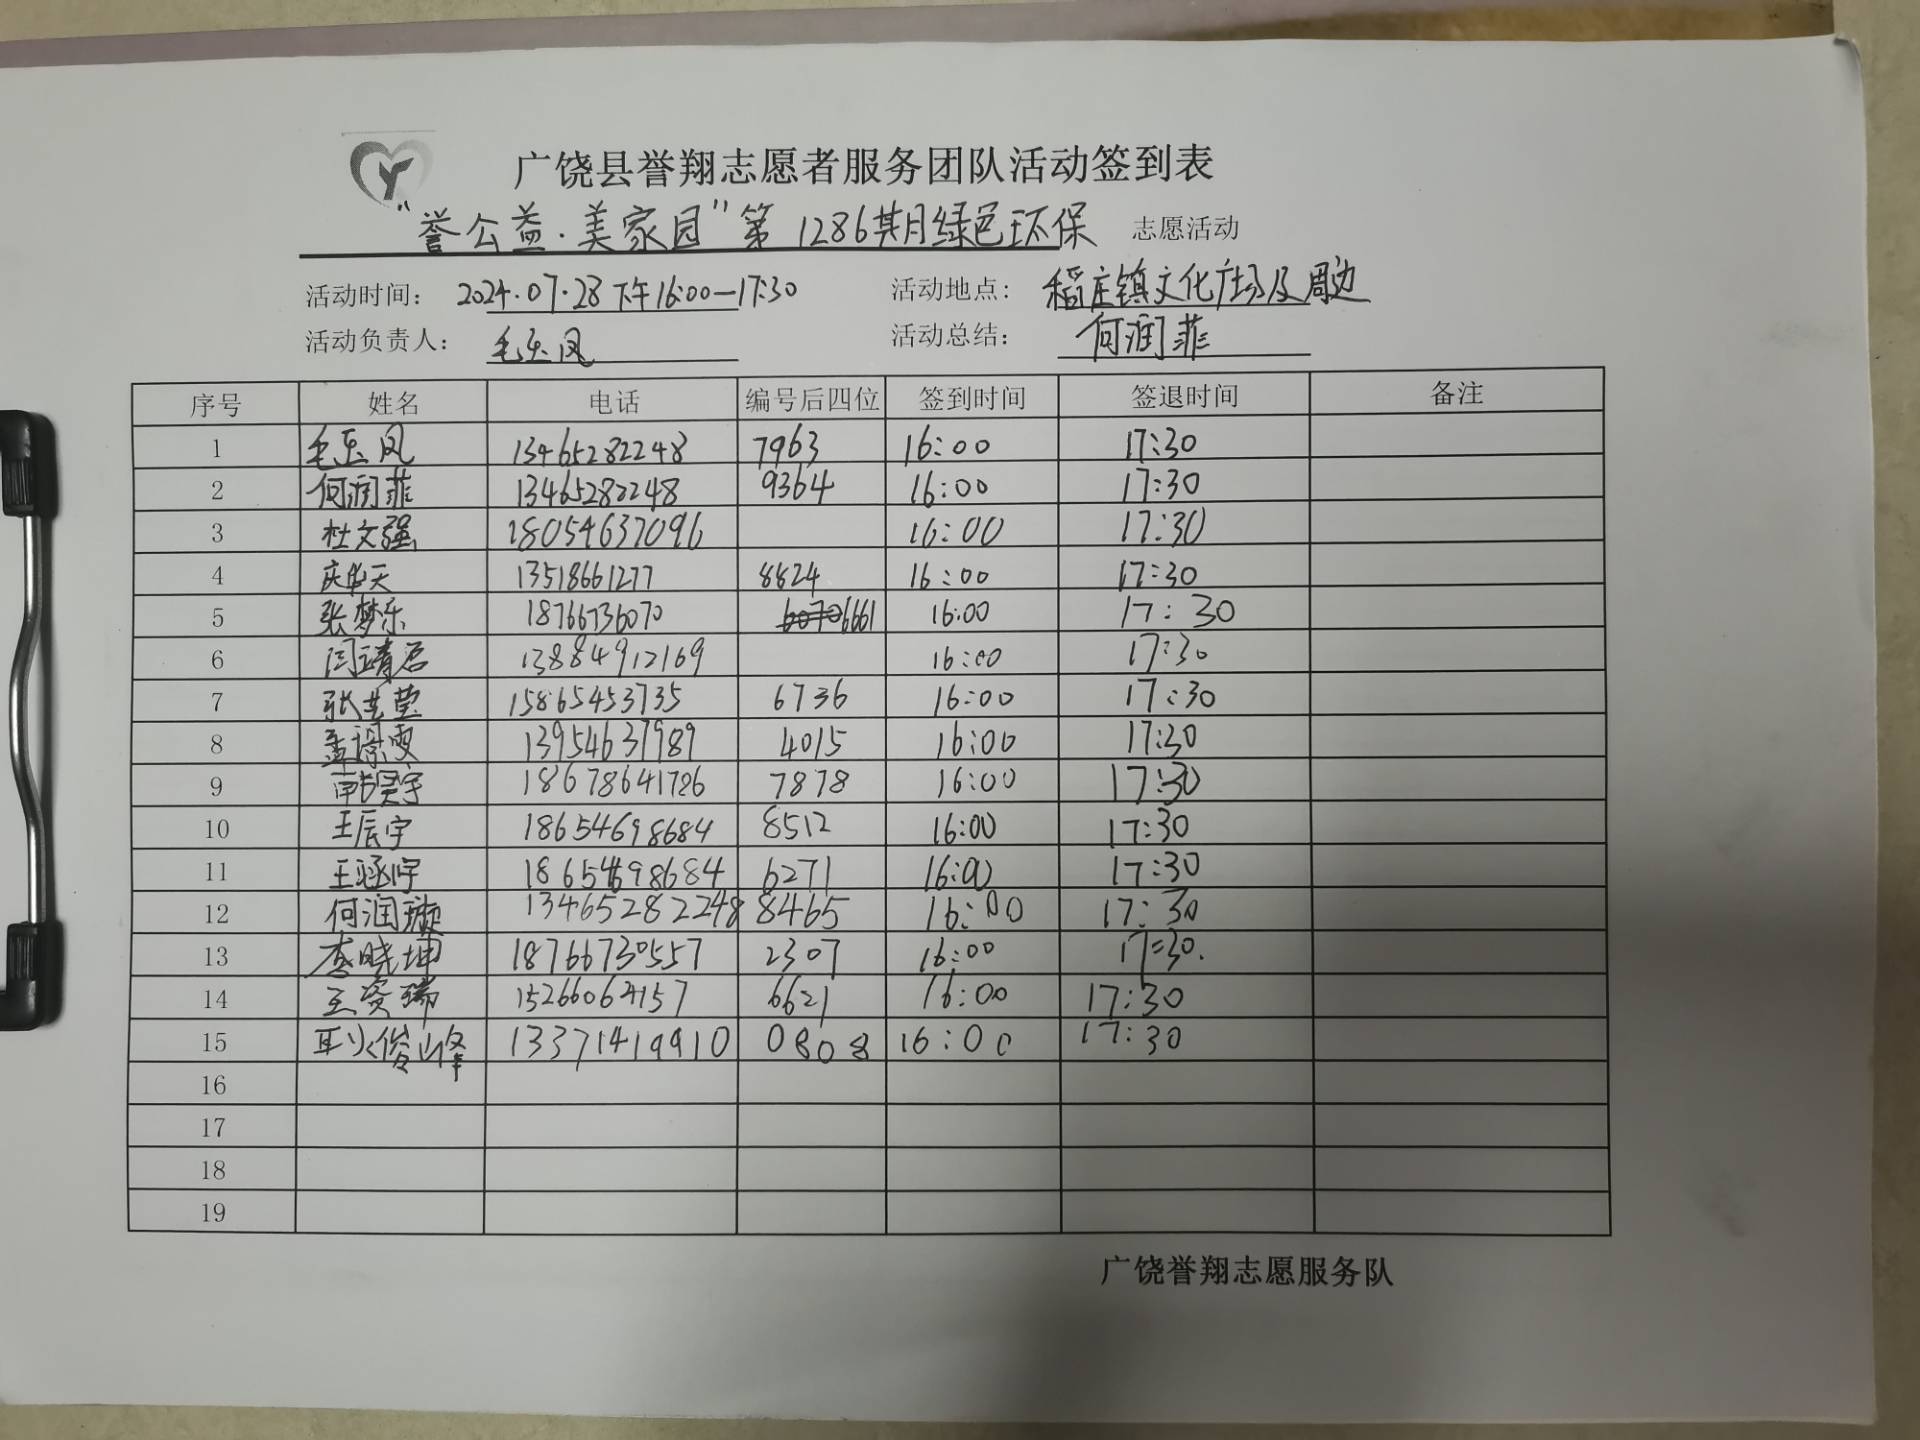 广饶县誉翔志愿者服务团队活动签到表
“誉公益·美家园”第1286期绿色环保 志愿活动
活动时间: 2024.07.28下午16:00—17:30 活动地点: 稻庄镇文化广场及周边
活动负责人: 毛乐凤 活动总结: 何润菲
序号 姓名 电话 编号后四位 签到时间 签退时间 备注
1 毛乐凤 13465282248 7963 16:00 17:30
2 何润菲 13465282248 9364 16:00 17:30
3 杜文强 18054637096 16:00 17:30
4 13518661277 8824 16:00 17:30
5 张梦乐 18766736070 6661 16:00 17:30
6 闫靖 13884912169 16:00 17:30
7 张 莹 15865453735 6736 16:00 17:30
8 孟璟雯 13954637989 4015 16:00 17:30
9 韩昊宇 18678641726 7878 16:00 17:30
10 王辰宇 18654698684 8512 16:00 17:30
11 王涵宇 18654698684 6271 16:00 17:30
12 何润璇 13465282248 8465 16:00 17:30
13 李晓坤 18766730557 2307 16:00 17:30.
14 王资瑞 15266064157 6621 16:00 17:30
15 耿俊峰 13371419910 0808 16:00 17:30
16
17
18
19
广饶誉翔志愿服务队